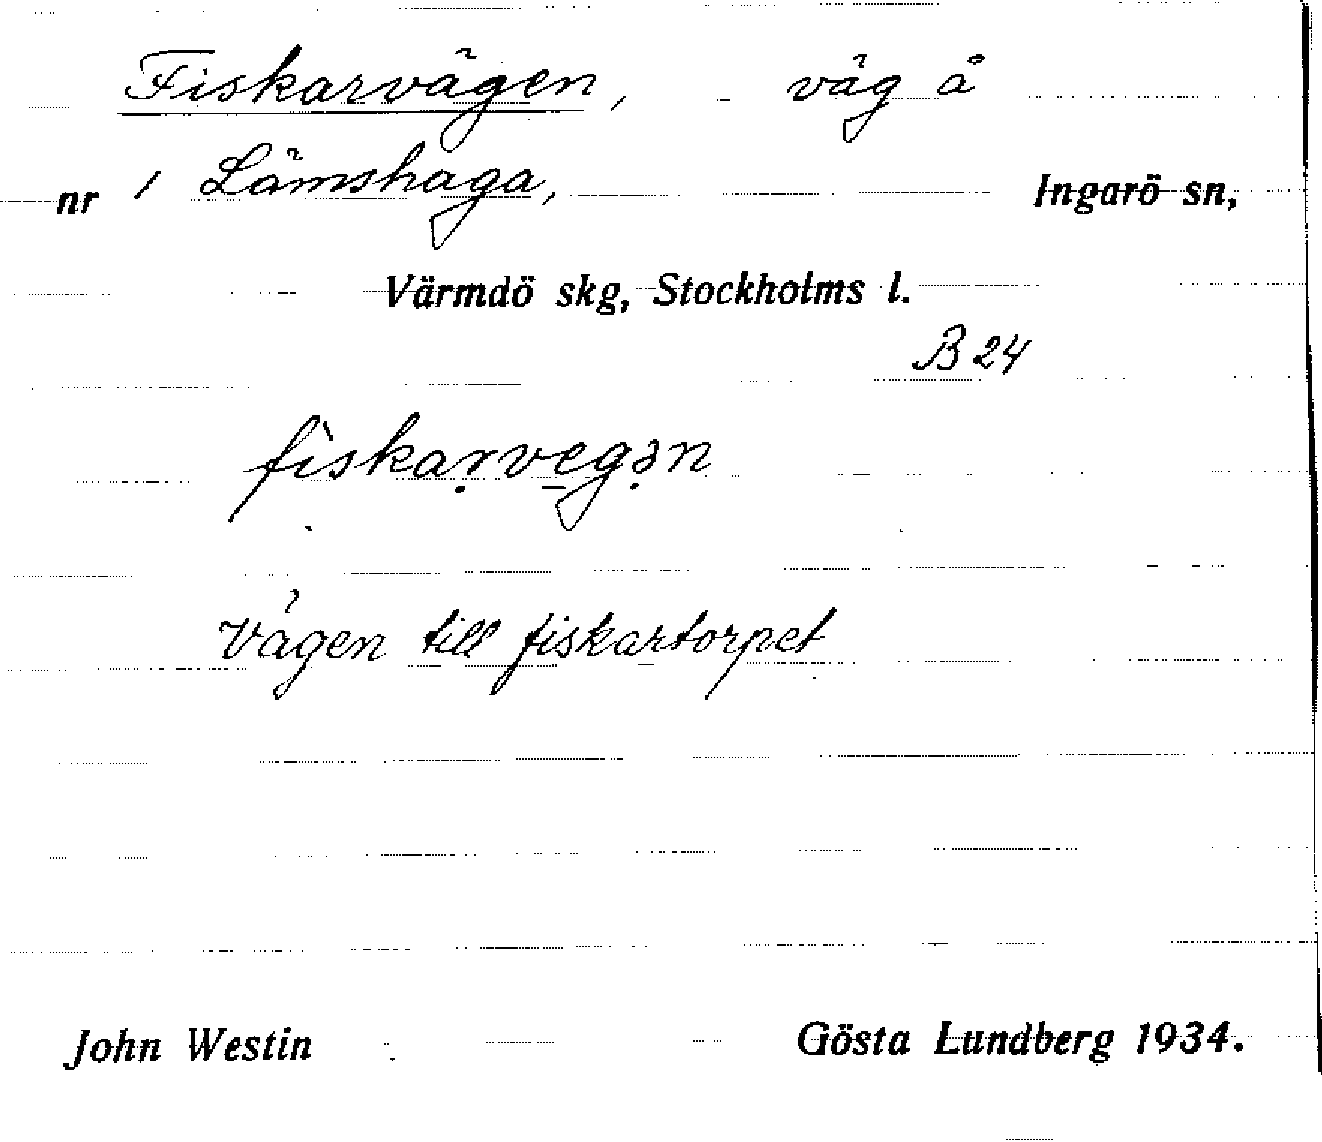 Fiskarvägen, väg å
nr 1 Lämshaga, Ingarö sn,
Värmdö skg, Stockholms l.
B 24
fìskạrve̲gə̣n
Vägen till fiskartorpet
John Westin Gösta Lundberg 1934.